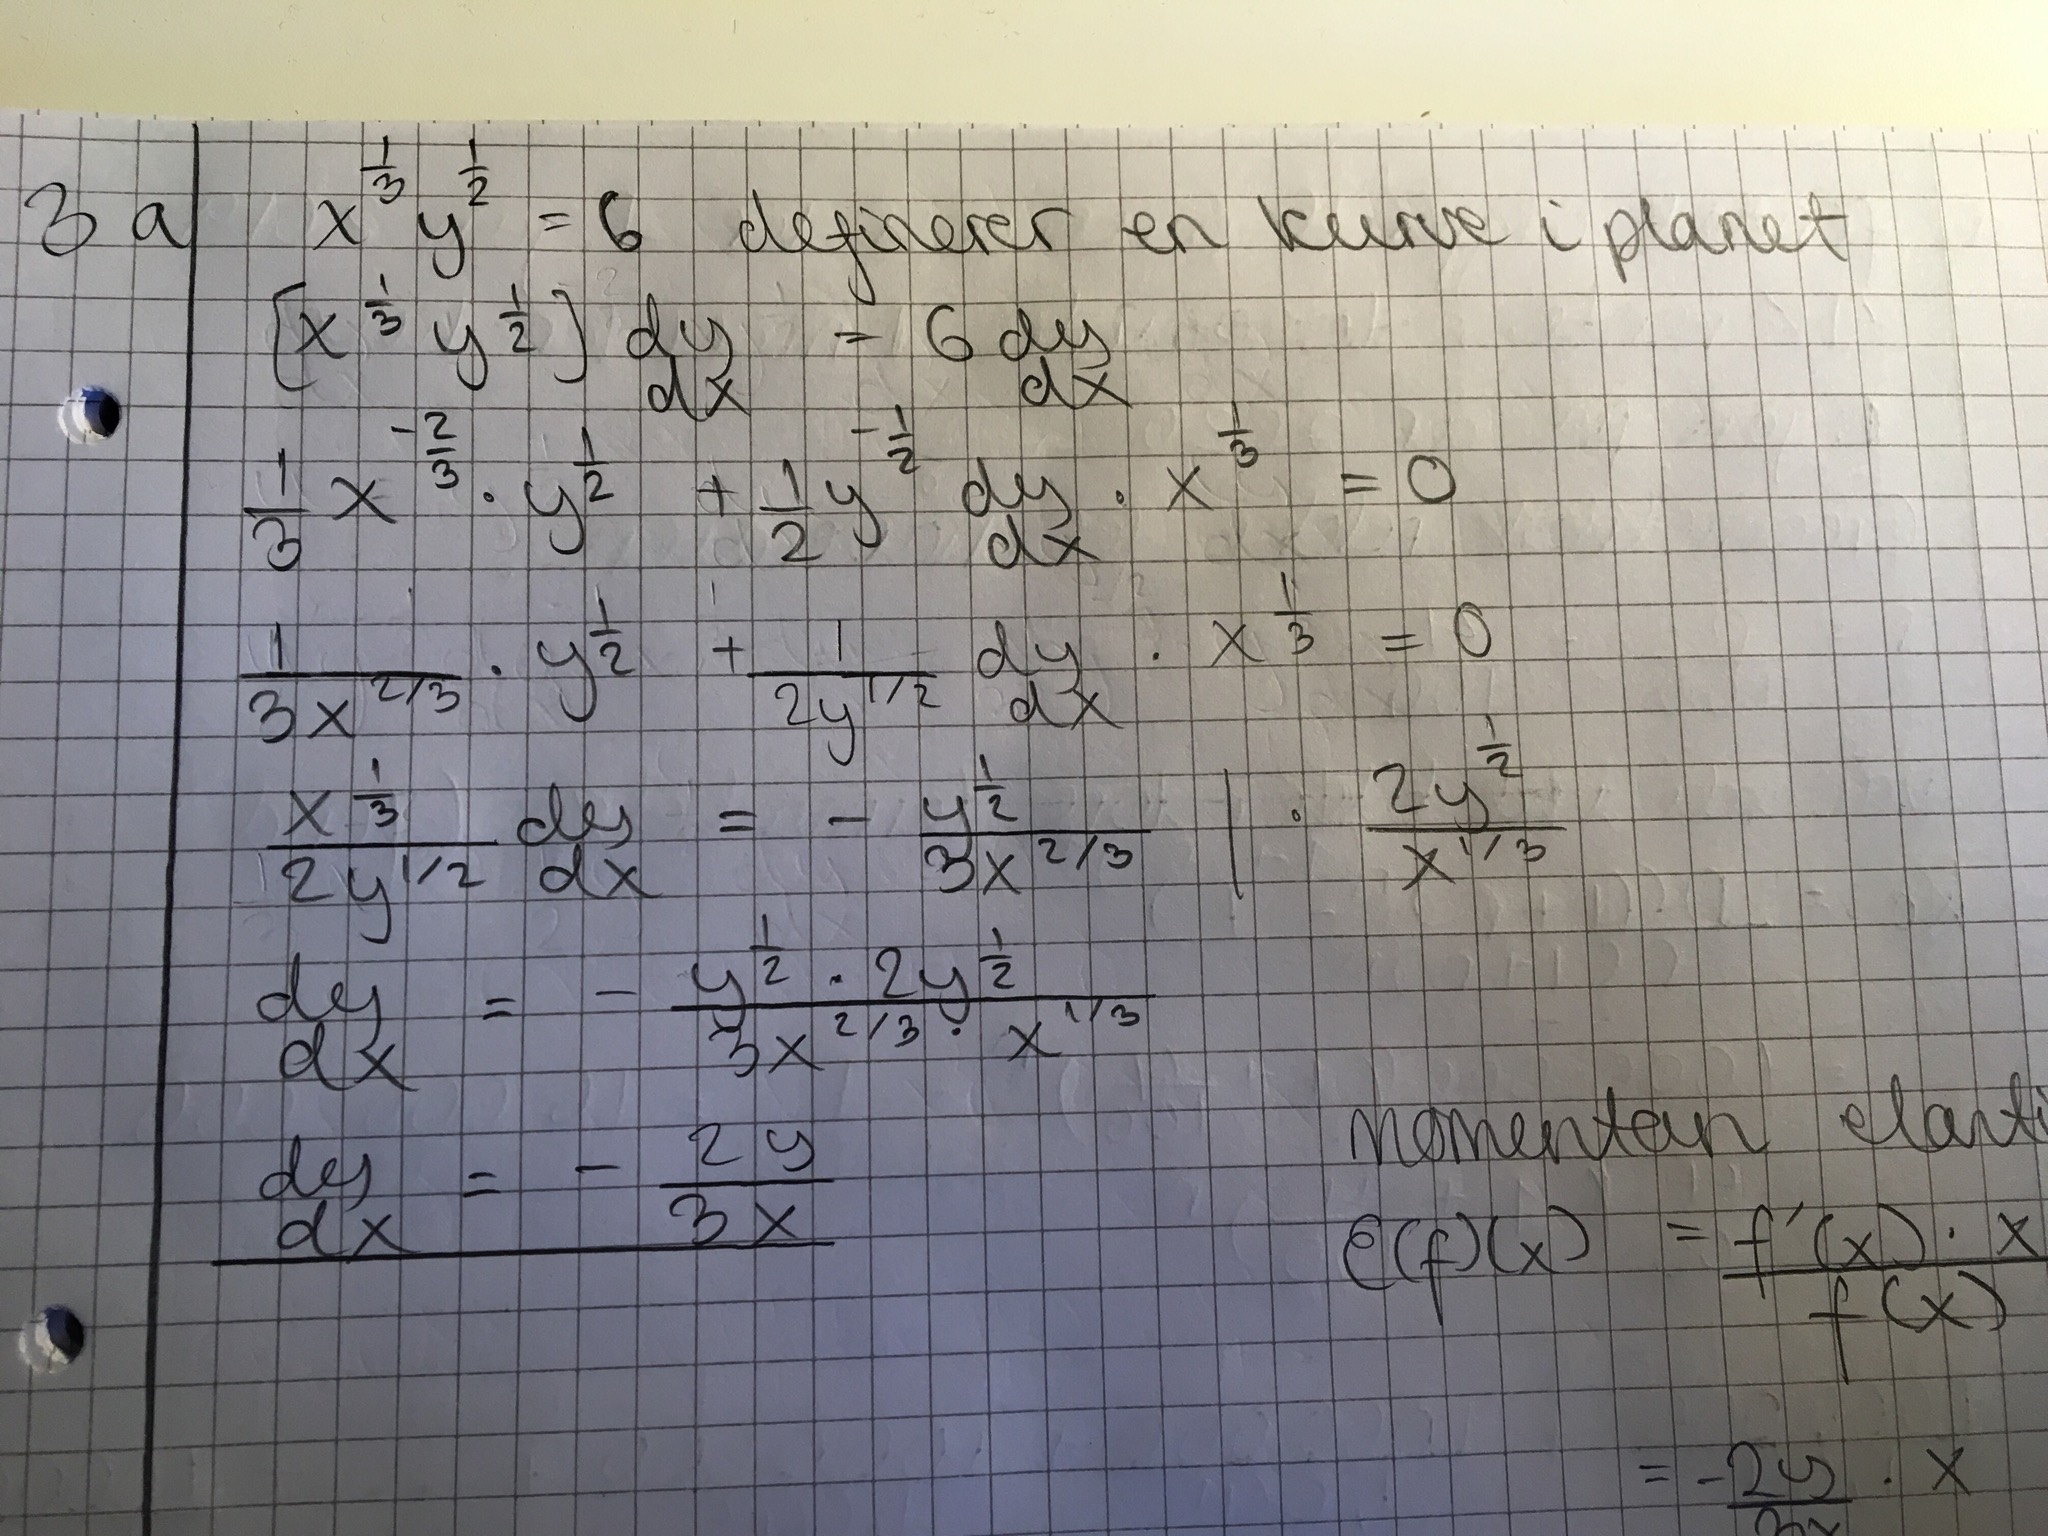 3a x^{1/3} y^{1/2} = 6 definerer en kurve i planet
[x^{1/3} y^{1/2}] dy/dx = 6 dy/dx
1/3 x^{-2/3} · y^{1/2} + 1/2 y^{-1/2} dy/dx · x^{1/3} = 0
1/(3x^{2/3}) · y^{1/2} + 1/(2y^{1/2}) dy/dx · x^{1/3} = 0
x^{1/3}/(2y^{1/2}) dy/dx = - y^{1/2}/(3x^{2/3}) | · 2y^{1/2}/x^{1/3}
dy/dx = - (y^{1/2} · 2y^{1/2})/(3x^{2/3} · x^{1/3})
dy/dx = - 2y/3x
Momentan elasti
E(f)(x) = f'(x) · x / f(x)
= -2y/3x · x